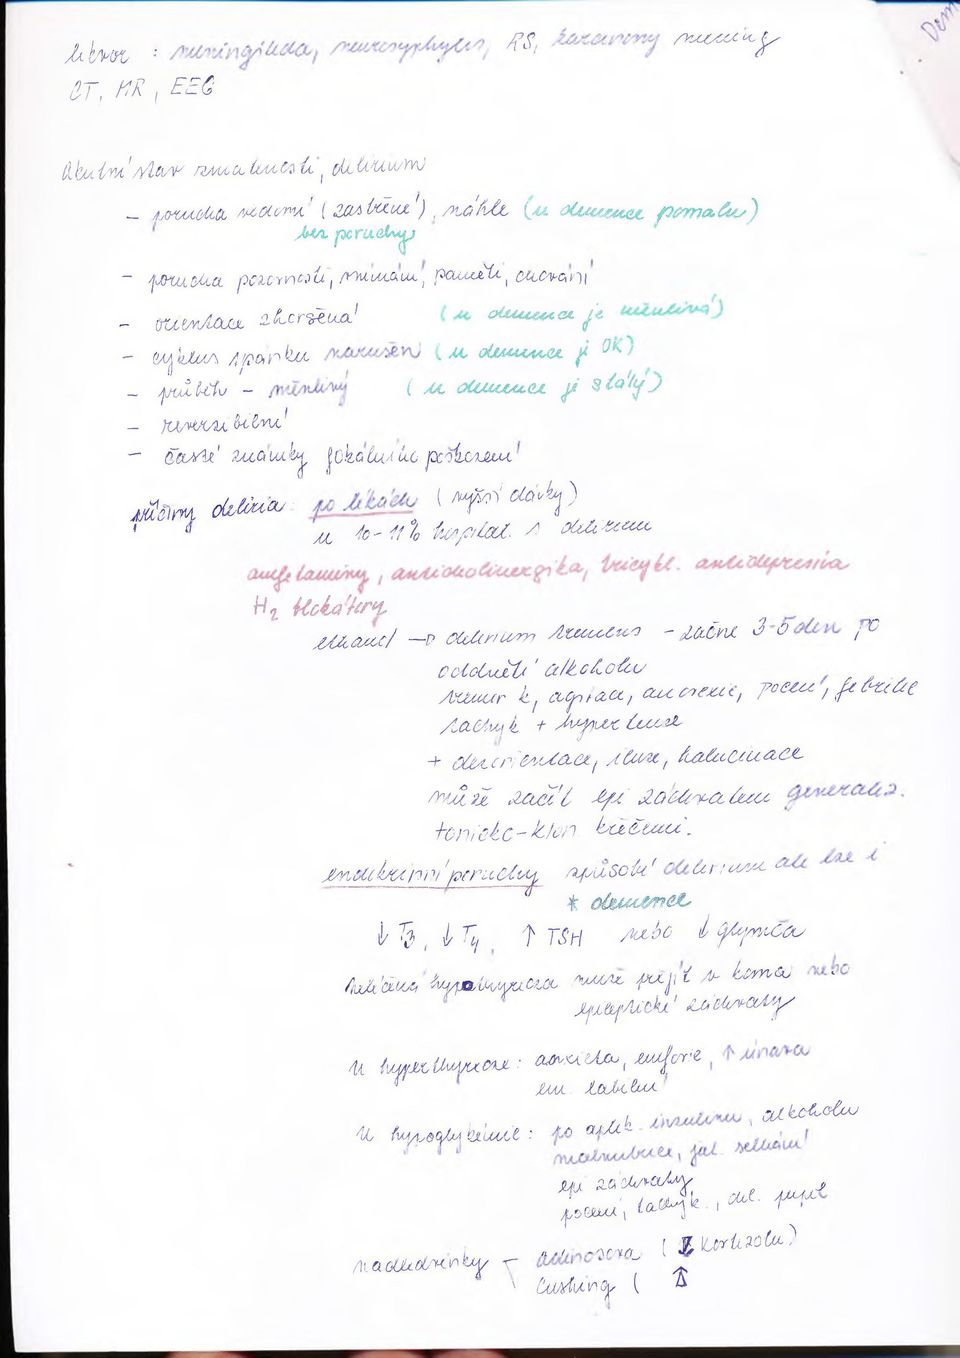 likvor : meningitida, neurosyphylis, RS, karcinomy mening
CT, MR, EEG
Dem
Akutní stav zmatenosti, delirium
– porucha vědomí (zastřené), náhle (u demence pomalu)
bez poruchy
– porucha pozornosti, vnímání, paměti, chování
– orientace zhoršená (u demence je měnlivá)
– cyklus spánku narušen (u demence je OK)
– průběh – měnlivý (u demence je stálý)
– reverzibilní
– časté známky fokálního poškození
příčiny deliria: po lékách (vyšší dávky)
u 10-11% hospital. s deliriem
amfetaminy, anticholinergika, tricykl. antidepresiva
H2 blokátory
ethanol → delirium tremens – začne 3-5 den po
oddnětí alkoholu
tremor k, agitace, anorexie, pocení, febrilie
tachyk + hypertenze
+ dezorientace, iluze, halucinace
může začít epi záchvatem generaliz.
tonicko-klon křečemi.
endokrinní poruchy způsobí delirium ale lze i
* demence
↓ T3, ↓ T4, ↑ TSH nebo ↓ glykémie
neléčená hypothyreoza může přejít v koma nebo
epileptické záchvaty
u hyperthyreoze: anxieta, euforie, ↑ únava
em. labilní
u hypoglykémie: po aplik. inzulinu, alkoholu
malnutrice, jat. selhání
epi záchvaty
pocení, tachyk., dil. pupil
nadledvinky – Adisonova (↓ kortizolu)
Cushing (↑